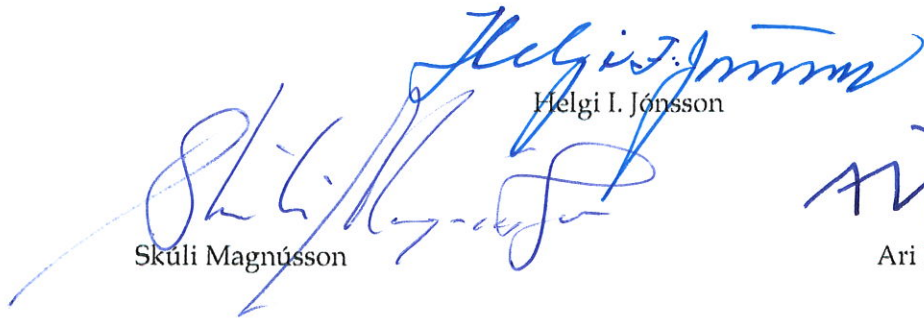 Helgi I. Jónsson
Helgi I. Jónsson
Skúli Magnússon
Skúli Magnússon Ari